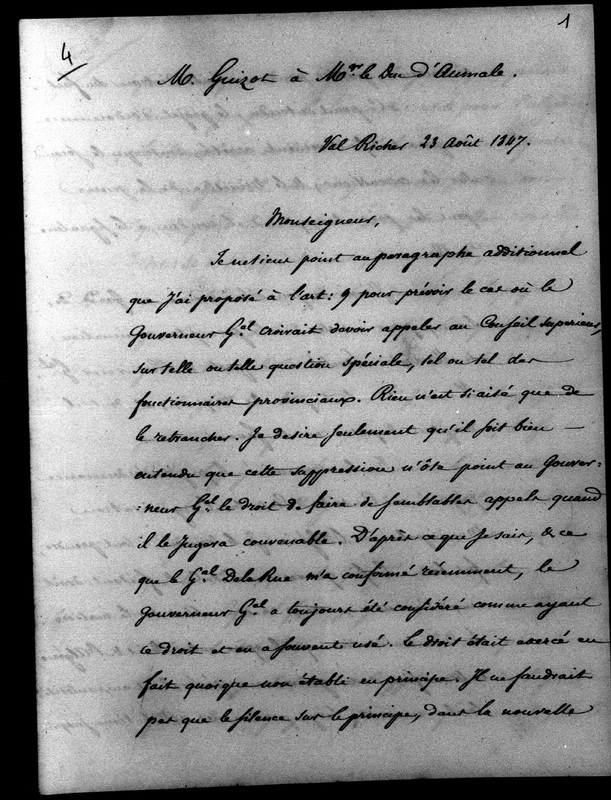 4
1
M. Guizot à Mgr le Duc d'Aumale.
Val Richer 23 Août 1847.
Monseigneur,
Je ne tiens point au paragraphe additionnel
que j'ai proposé à l'art: 9 pour prévoir le cas où le
Gouverneur Gal croirait devoir appeler au Conseil supérieur,
sur telle ou telle question spéciale, tel ou tel des
fonctionnaires provinciaux. Rien n'est si aisé que de
le retrancher. Je desire seulement qu'il soit bien —
entendu que cette suppression n'ôte point au Gouver=
=neur Gal le droit de faire de semblables appels quand
il le jugera convenable. D'après ce que je sais, & ce
que le Gal Dela Rue m'a confirmé récemment, le
Gouverneur Gal a toujours été considéré comme ayant
ce droit et en a souvent usé. Le droit était exercé en
fait quoique non établi en principe. Il ne faudrait
pas que le silence sur le principe, dans la nouvelle